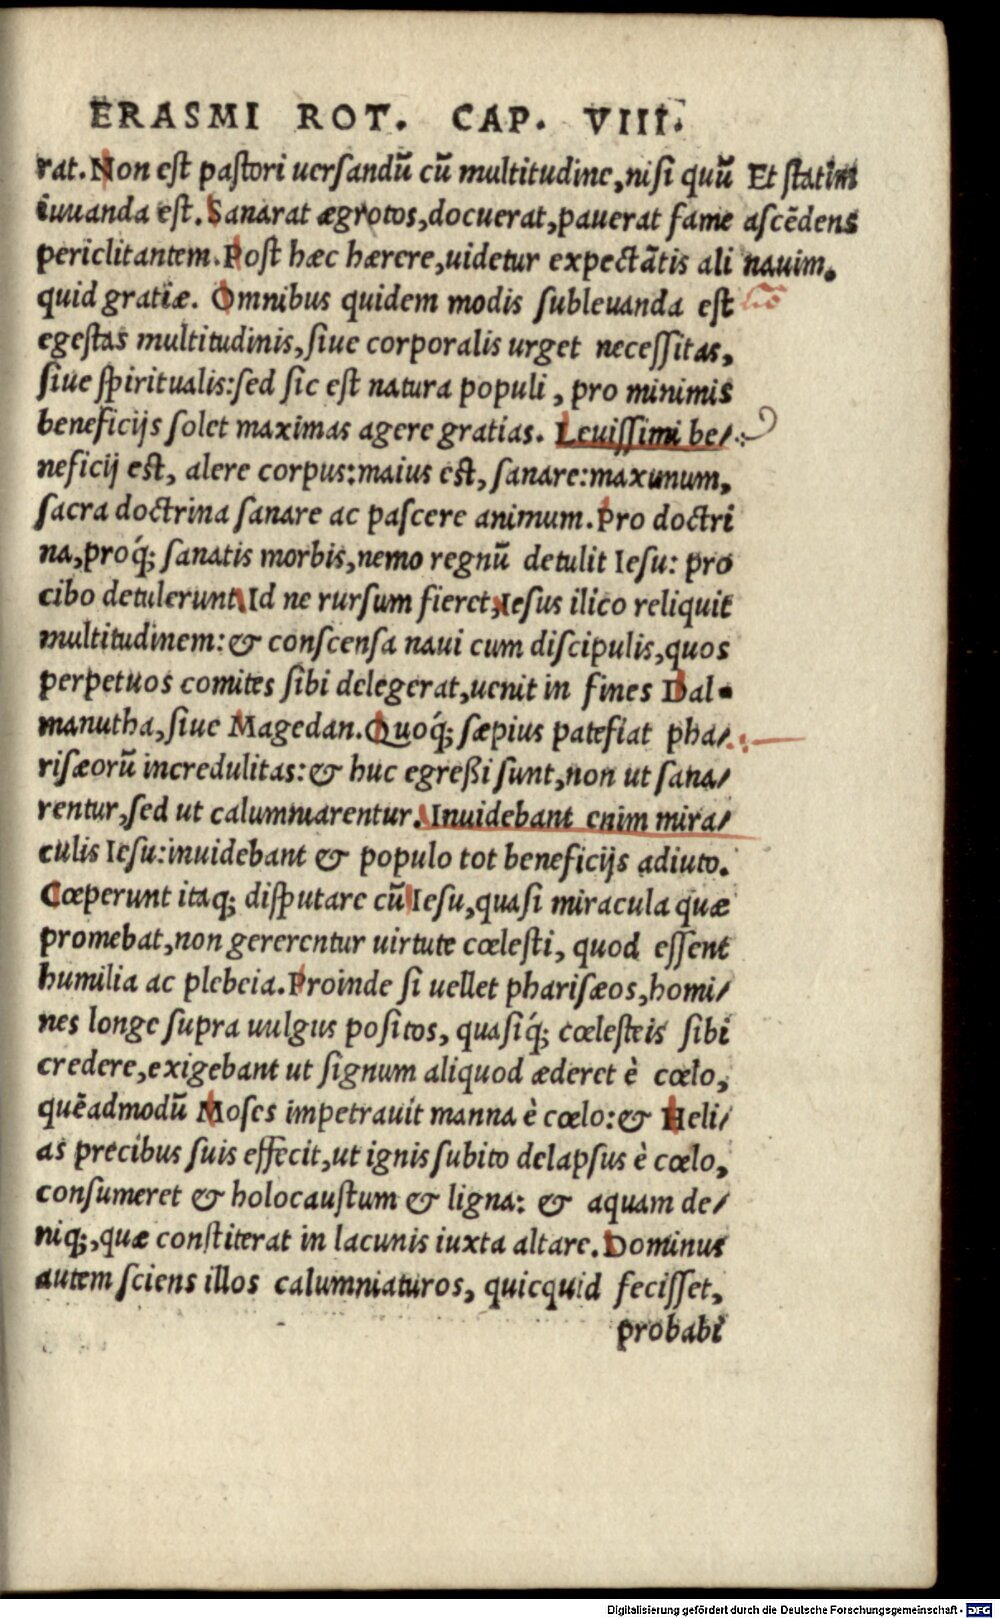 ERASMI ROT. CAP. VIII.
rat. Non est pastori uersandũ cũ multitudine, nisi quũ
iuuanda est. Sanarat ægrotos, docuerat, pauerat fame
periclitantem. Post hæc hærere, uidetur expectãtis ali
quid gratiæ. Omnibus quidem modis subleuanda est
egestas multitudinis, siue corporalis urget necessitas,
siue spiritualis: sed sic est natura populi, pro minimis
beneficijs solet maximas agere gratias. Leuissimi be/
neficij est, alere corpus: maius est, sanare: maximum,
sacra doctrina sanare ac pascere animum. Pro doctri
na, proq́; sanatis morbis, nemo regnũ detulit Iesu: pro
cibo detulerunt. Id ne rursum fieret, Iesus ilico reliquit
multitudinem: & conscensa naui cum discipulis, quos
perpetuos comites sibi delegerat, uenit in fines Dal-
manutha, siue Magedan. Quoq́; sæpius patefiat pha/
risæorũ incredulitas: & huc egreßi sunt, non ut sana/
rentur, sed ut calumniarentur. Inuidebant enim mira/
culis Iesu: inuidebant & populo tot beneficijs adiuto.
Cœperunt itaq; disputare cũ Iesu, quasi miracula quæ
promebat, non gererentur uirtute cœlesti, quod essent
humilia ac plebeia. Proinde si uellet pharisæos, homi/
nes longe supra uulgus positos, quasiq́; cœlesteis sibi
credere, exigebant ut signum aliquod æderet è cœlo,
quẽadmodũ Moses impetrauit manna è cœlo: & Heli/
as precibus suis effecit, ut ignis subito delapsus è cœlo,
consumeret & holocaustum & ligna: & aquam de/
niq;, quæ constiterat in lacunis iuxta altare. Dominus
autem sciens illos calumniaturos, quicquid fecisset,
probabi
Et statim
ascẽdens
nauim.
Digitalisierung gefördert durch die Deutsche Forschungsgemeinschaft - DFG